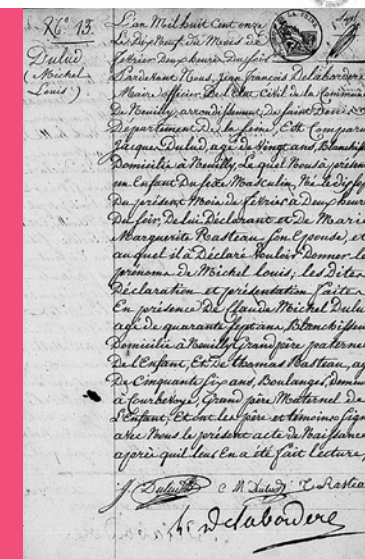 N.º 13.
Dulud
(Michel
Louis)
L'an Mil huit Cent onze
Le Dix Neuf du Mois de
fevrier Deux heures Du soir
Pardevant Nous, Jean françois Delabordere
Maire officier De L'Etat Civil de la Commune
De Neuilly, arrondissement De Saint Denis
Departement De la Seine, Est Comparu
Jacques Dulud, age de Vingt ans, Blanchiss
Domicilié à Neuilly, Lequel Nous a présen
un Enfant Du sexe Masculin, Né le dix
Du présent Mois de fevrier à Deux heure
Du soir, De lui Déclarant et De Marie
Marguerite Rasteau son Epouse, et
auquel il a Déclaré Vouloir Donner le
prénoms de Michel Louis; les Dites
Déclaration et présentation faites
En présence De Claude Michel Dulu
age de quarante sept ans, Blanchisseu
Domicilié à Neuilly Grand père paterne
De l'Enfant, Et De thomas Rasteau, ag
De Cinquante Six ans, Boulanger, Demeu
à Courbevoye, Grand père Maternel de
L'Enfant, Et ont les père et temoins Sign
avec Nous le présent acte de Naissance
après quil leur En a été fait Lecture,
J. Dulud C M Dulud T. Rastea
Delabordere